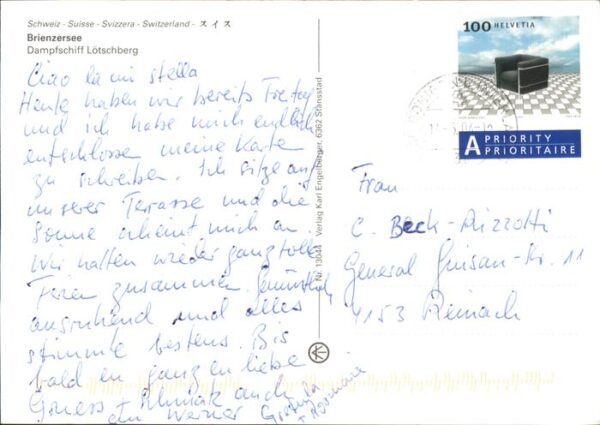 Schweiz - Suisse - Svizzera - Switzerland - スイス
Brienzersee
Dampfschiff Lötschberg
Ciao la mi stella
Heute haben wir bereits Freitag
und ich habe mich endlich
entschlossen meine Karte
zu schreiben. Ich sitze auf
unserer Terrasse und die
Sonne scheint mich an.
Wir hatten wieder ganz tolle
Ferien zusammen. Gemütlich
ausruhend und alles
stimmte bestens. Bis
bald en ganz en liebe
Gruess + Schmatz auch
Werner
Nr. 13044 Verlag Karl Engelberger, 6362 Stansstad
100 HELVETIA
A PRIORITY
PRIORITAIRE
Frau
C. Beck-Rizzotti
General Guisan-Str. 11
4153 Reinach